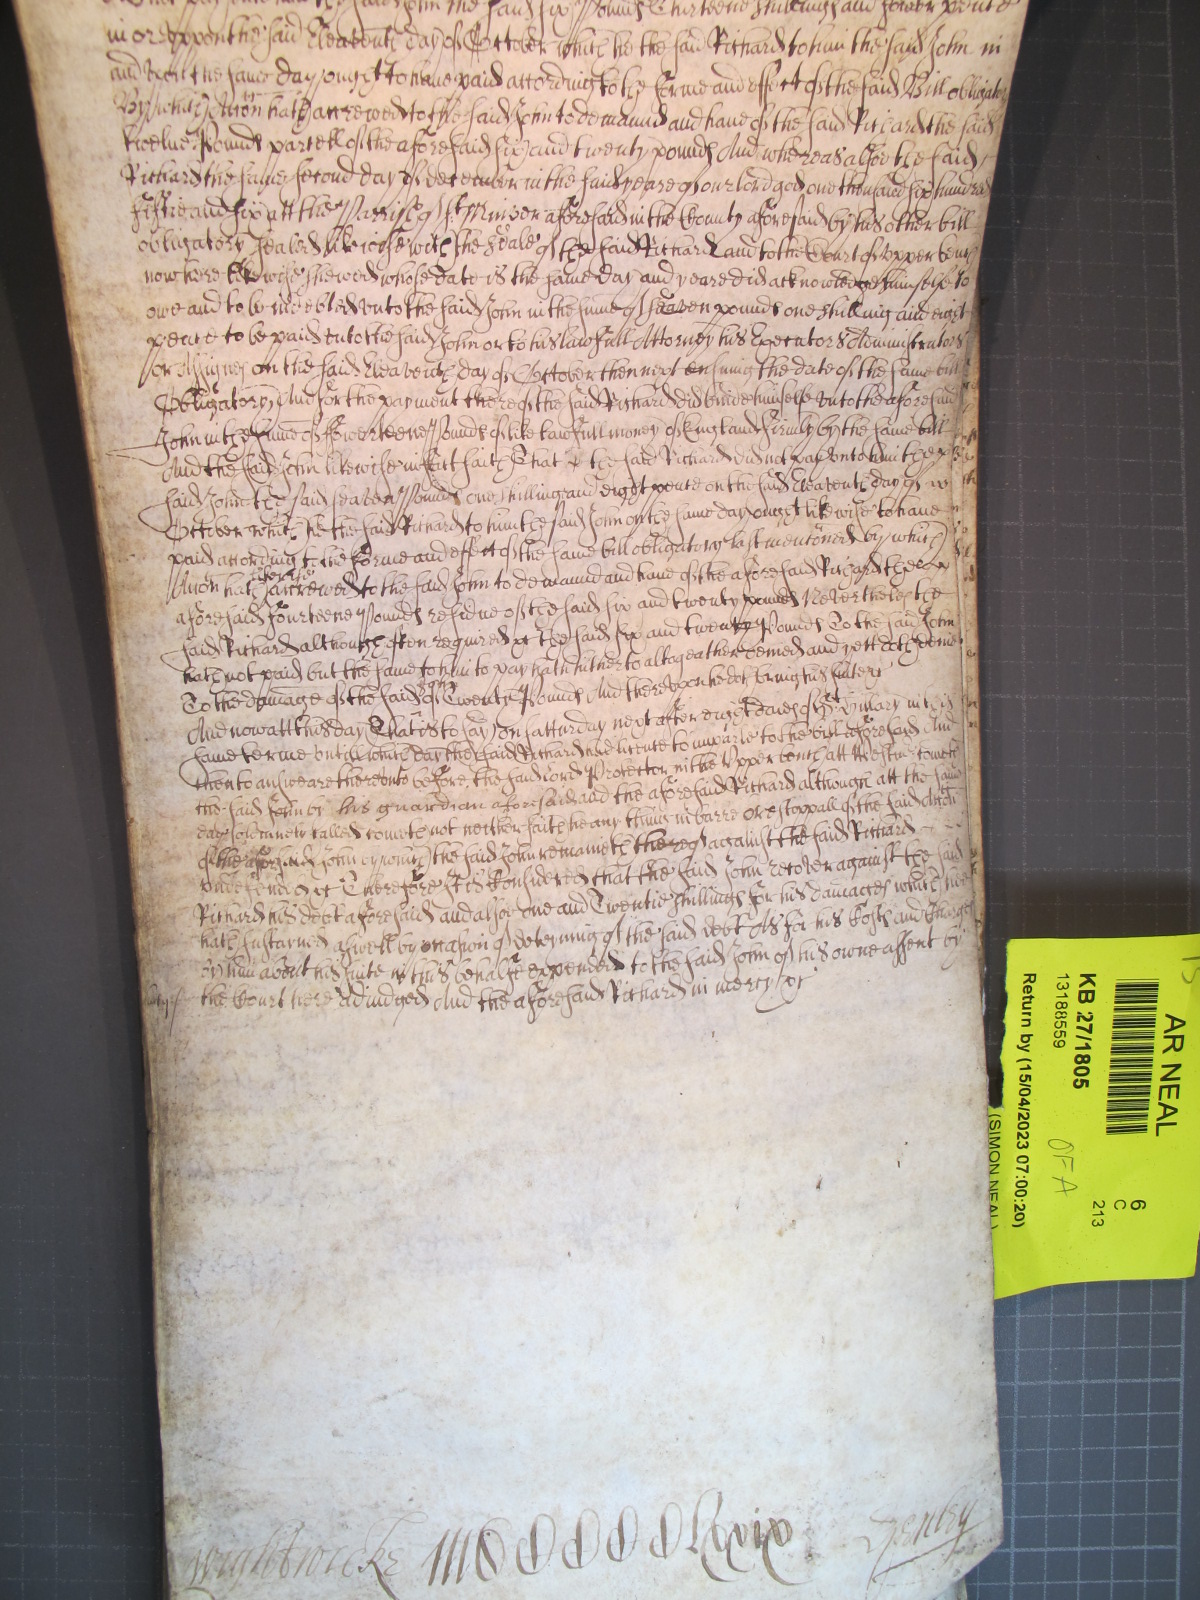 not pay unto him the said John the said six Pounds Thirteene shillings and fower pence
in or uppon the said Eleaventh day of October which he the said Richard to him the said John in
and upon the same day ought to have paid according to the forme and effect of the said Bill obligatory
By which Accon hath accrewed to the said John to demaund and have of the said Richard the said
twelve Pounds parcell of the aforesaid six and twenty pounds And whereas alsoe the said
Richard the same second day of december in the said yeare of our lord god one thousand six hundred
fiftie and six att the Parrish of aforesaid in the County aforesaid by his other bill
obligatory sealed likewise with the Seale of the said Richard and to the Court of upper bench
now here likewise shewed whose date is the same day and yeare did acknowledge himselfe to
owe and to be indebted unto the said John in the summe of seaven pounds one shilling and eight
pence to be paid unto the said John or to his lawfull Attorney his Executors Administrators
or Assignes on the said Eleaventh day of October then next ensuing the date of the same bill
Obligatory And for the payment thereof the said Richard did binde himselfe unto the aforesaid
John in the summe of fowerteene Pounds of like lawfull money of England firmly by the same bill
And the said John likewise in fact saith That the said Richard did not pay unto him the
said John the said seaven Pounds one shilling and eight pence on the said Eleaventh day of
October which he the said Richard to him the said John on the same day ought likewise to have
paid according to the forme and effect of the same bill obligatory last mencioned by which
Accon hath likewise accrewed to the said John to demaund and have of the aforesaid Richard the
aforesaid fourteene Pounds residue of the said six and twenty pounds Neverthelesse the
said Richard although often required the said six and twenty Pounds To the said John
hath not paid but the same to him to pay hath hitherto altogeather denied and yett doth denie
To the damage of the said John of Twenty Pounds And thereupon he doth bring his suite
And now att this day (That is to say) on Satturday next after eight daies of St Hillary in this
same terme untill which day the said Richard had licence to imparle to the bill aforesaid And
then to answeare thereunto before the said lord Protector in the Upper bench att Westminster cometh
the said John by his guardian aforesaid and the aforesaid Richard although att the same
day solemnely called cometh not neither saith he any thing in barre or estoppall of the said Accon
of the aforesaid John by which the said John remaineth thereof against the said Richard
undefended Therefore It is Considered that the said John recover against the said
Richard his debt aforesaid and alsoe one and Twentie shillings for his damages which hee
hath sustained aswell by occasion of deteining of the said debt As for his Costs and Charges
by him about his suite in this behalfe expended to the said John of his owne assent by
the Court here adjudged And the aforesaid Richard in mercy &c
Wightwicke
Henley
AR NEAL
KB 27/1805
13188559
Return by (15/04/2023 07:00:20)
(SIMON NEAL)
OFA
6
C
213